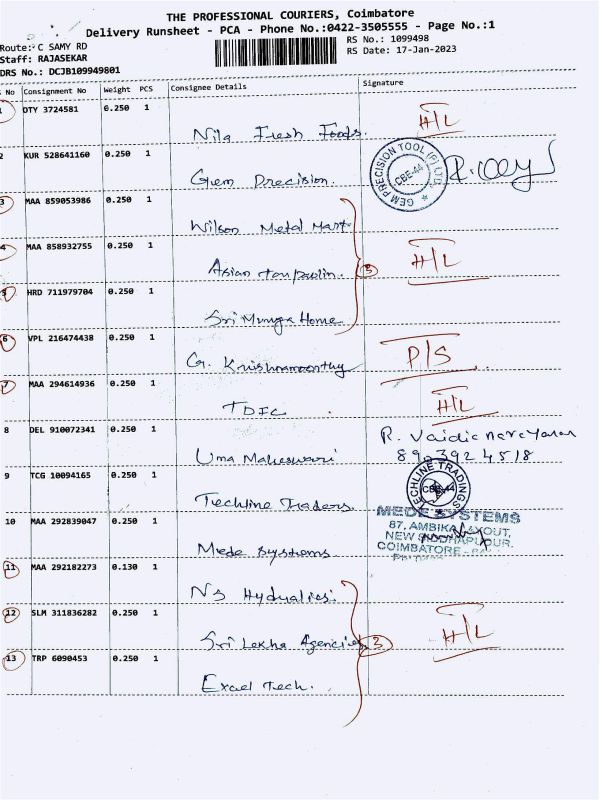 THE PROFESSIONAL COURIERS, Coimbatore
Delivery Runsheet - PCA - Phone No.:0422-3505555 - Page No.:1
Route: C SAMY RD
RS No.: 1099498
Staff: RAJASEKAR
RS Date: 17-Jan-2023
DRS No.: DCJB109949801
No Consignment No Weight PCS Consignee Details Signature
1 DTY 3724581 0.250 1 Nila Fresh Foods. H/L
2 KUR 528641160 0.250 1 Gem Precision.
GEM PRECISION TOOL (P) LTD. CBE-44
3 MAA 859053986 0.250 1 Wilson Metal Mart
4 MAA 858932755 0.250 1 Asian Tarpaulin. H/L
5 HRD 711979704 0.250 1 Sri Muruga Home
6 VPL 216474438 0.250 1 G. Krishnamoorthy P/S
7 MAA 294614936 0.250 1 TDIC H/L
8 DEL 910072341 0.250 1 Uma Maheswari R. Vaidic narayanan
8903924518
9 TCG 10094165 0.250 1 Techline Traders
TECHLINE TRADINGS CBE-44
10 MAA 292839047 0.250 1 Mede Systems
MEDE SYSTEMS
87, AMBIKA LAYOUT,
NEW SIDDHAPUDUR,
COIMBATORE -
11 MAA 292182273 0.130 1 NS Hydraulics.
12 SLM 311836282 0.250 1 Sri Lekha Agencies H/L
13 TRP 6090453 0.250 1 Excel Tech.